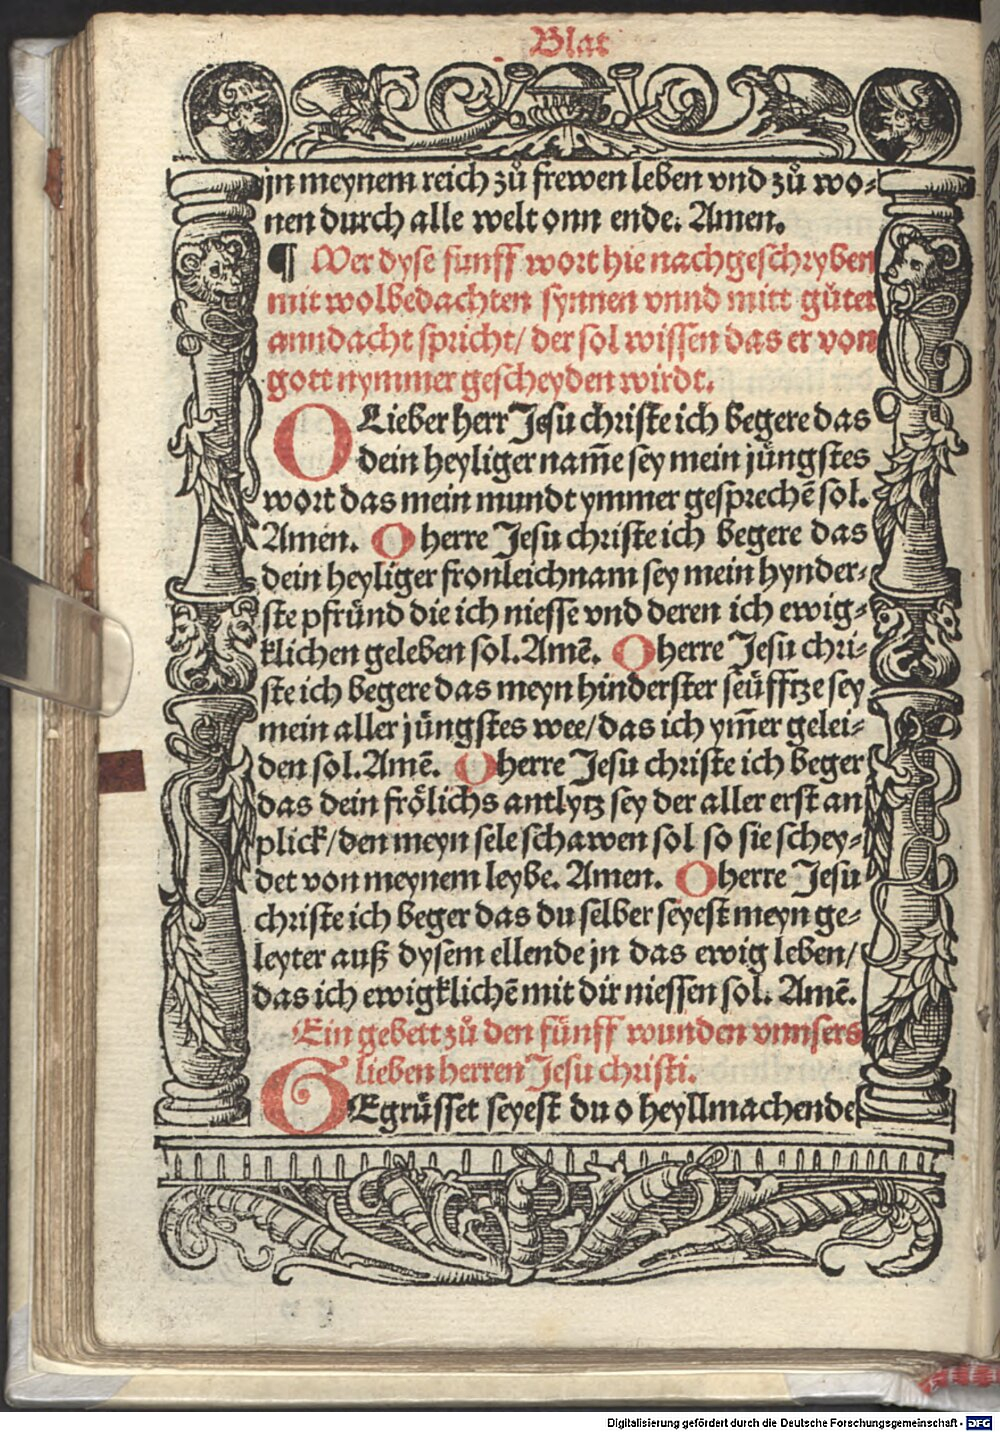 Blat
jn meynem reich zů frewen leben vnd zů wo-
nen durch alle welt onn ende. Amen.
¶ Wer dyse funff wort hie nachgeschryben
mit wolbedachten synnen vnnd mitt gůter
anndacht spricht/ der sol wissen das er von
gott nymmer gescheyden wirdt.
O Lieber herr Jesu christe ich begere das
dein heyliger nam̃e sey mein jüngstes
wort das mein mundt ymmer gesprechẽ sol.
Amen. O herre Jesu christe ich begere das
dein heyliger fronleichnam sey mein hynder-
ste pfründ die ich niesse vnd deren ich ewig-
klichen geleben sol. Amẽ. O herre Jesu chri-
ste ich begere das meyn hinderster seüfftze sey
mein aller jüngstes wee/ das ich ym̃er gelei-
den sol. Amẽ. O herre Jesu christe ich beger
das dein frölichs antlytz sey der aller erst an
plick/ den meyn sele schawen sol so sie schey-
det von meynem leybe. Amen. O herre Jesu
christe ich beger das du selber seyest meyn ge-
leyter auß dysem ellende jn das ewig leben/
das ich ewigklichẽ mit dir niessen sol. Amẽ.
Ein gebett zů den fünff wunden vnnsers
lieben herren Jesu christi.
GEgrüsset seyest du o heyllmachende
Digitalisierung gefördert durch die Deutsche Forschungsgemeinschaft - DFG